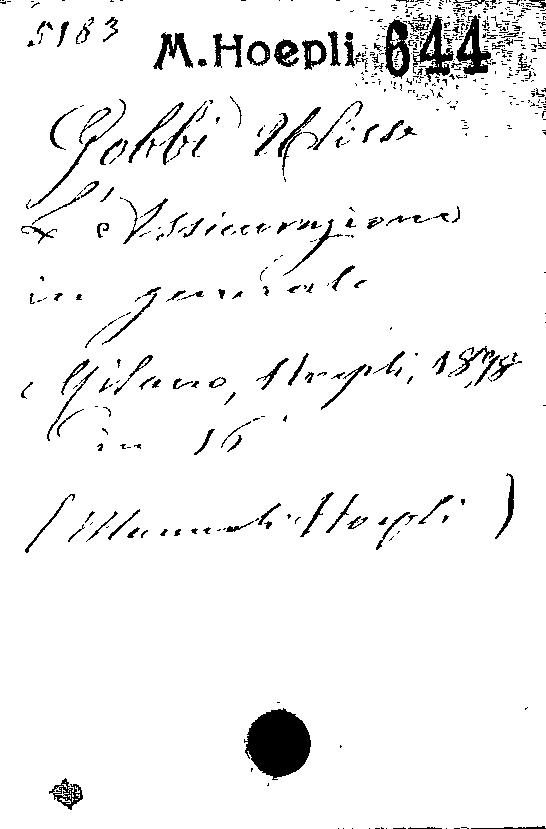 5183
M. Hoepli 644
Gobbi Ulisse
L'Assicurazione
in generale
Milano, Hoepli, 1898
in 16°
(Manuali Hoepli)